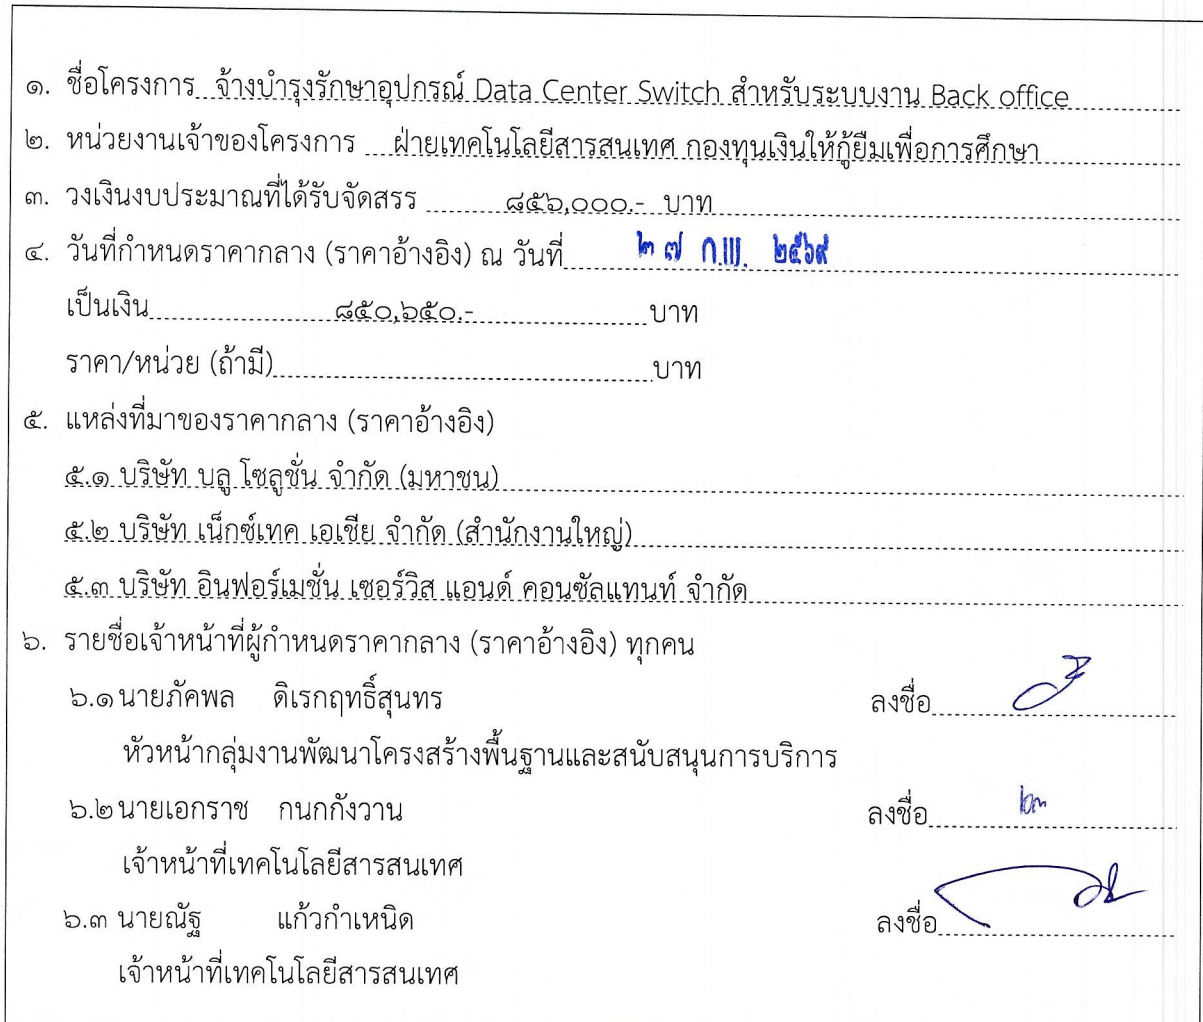 ๑. ชื่อโครงการ จ้างบำรุงรักษาอุปกรณ์ Data Center Switch สำหรับระบบงาน Back office
๒. หน่วยงานเจ้าของโครงการ ฝ่ายเทคโนโลยีสารสนเทศ กองทุนเงินให้กู้ยืมเพื่อการศึกษา
๓. วงเงินงบประมาณที่ได้รับจัดสรร ๘๕๖,๐๐๐.- บาท
๔. วันที่กำหนดราคากลาง (ราคาอ้างอิง) ณ วันที่ ๒๗ ก.พ. ๒๕๖๙
เป็นเงิน ๘๕๐,๖๕๐.- บาท
ราคา/หน่วย (ถ้ามี) บาท
๕. แหล่งที่มาของราคากลาง (ราคาอ้างอิง)
๕.๑ บริษัท บลู โซลูชั่น จำกัด (มหาชน)
๕.๒ บริษัท เน็กซ์เทค เอเชีย จำกัด (สำนักงานใหญ่)
๕.๓ บริษัท อินฟอร์เมชั่น เซอร์วิส แอนด์ คอนซัลแทนท์ จำกัด
๖. รายชื่อเจ้าหน้าที่ผู้กำหนดราคากลาง (ราคาอ้างอิง) ทุกคน
๖.๑ นายภัคพล ดิเรกฤทธิ์สุนทร ลงชื่อ
หัวหน้ากลุ่มงานพัฒนาโครงสร้างพื้นฐานและสนับสนุนการบริการ
๖.๒ นายเอกราช กนกกังวาน ลงชื่อ
เจ้าหน้าที่เทคโนโลยีสารสนเทศ
๖.๓ นายณัฐ แก้วกำเหนิด ลงชื่อ
เจ้าหน้าที่เทคโนโลยีสารสนเทศ